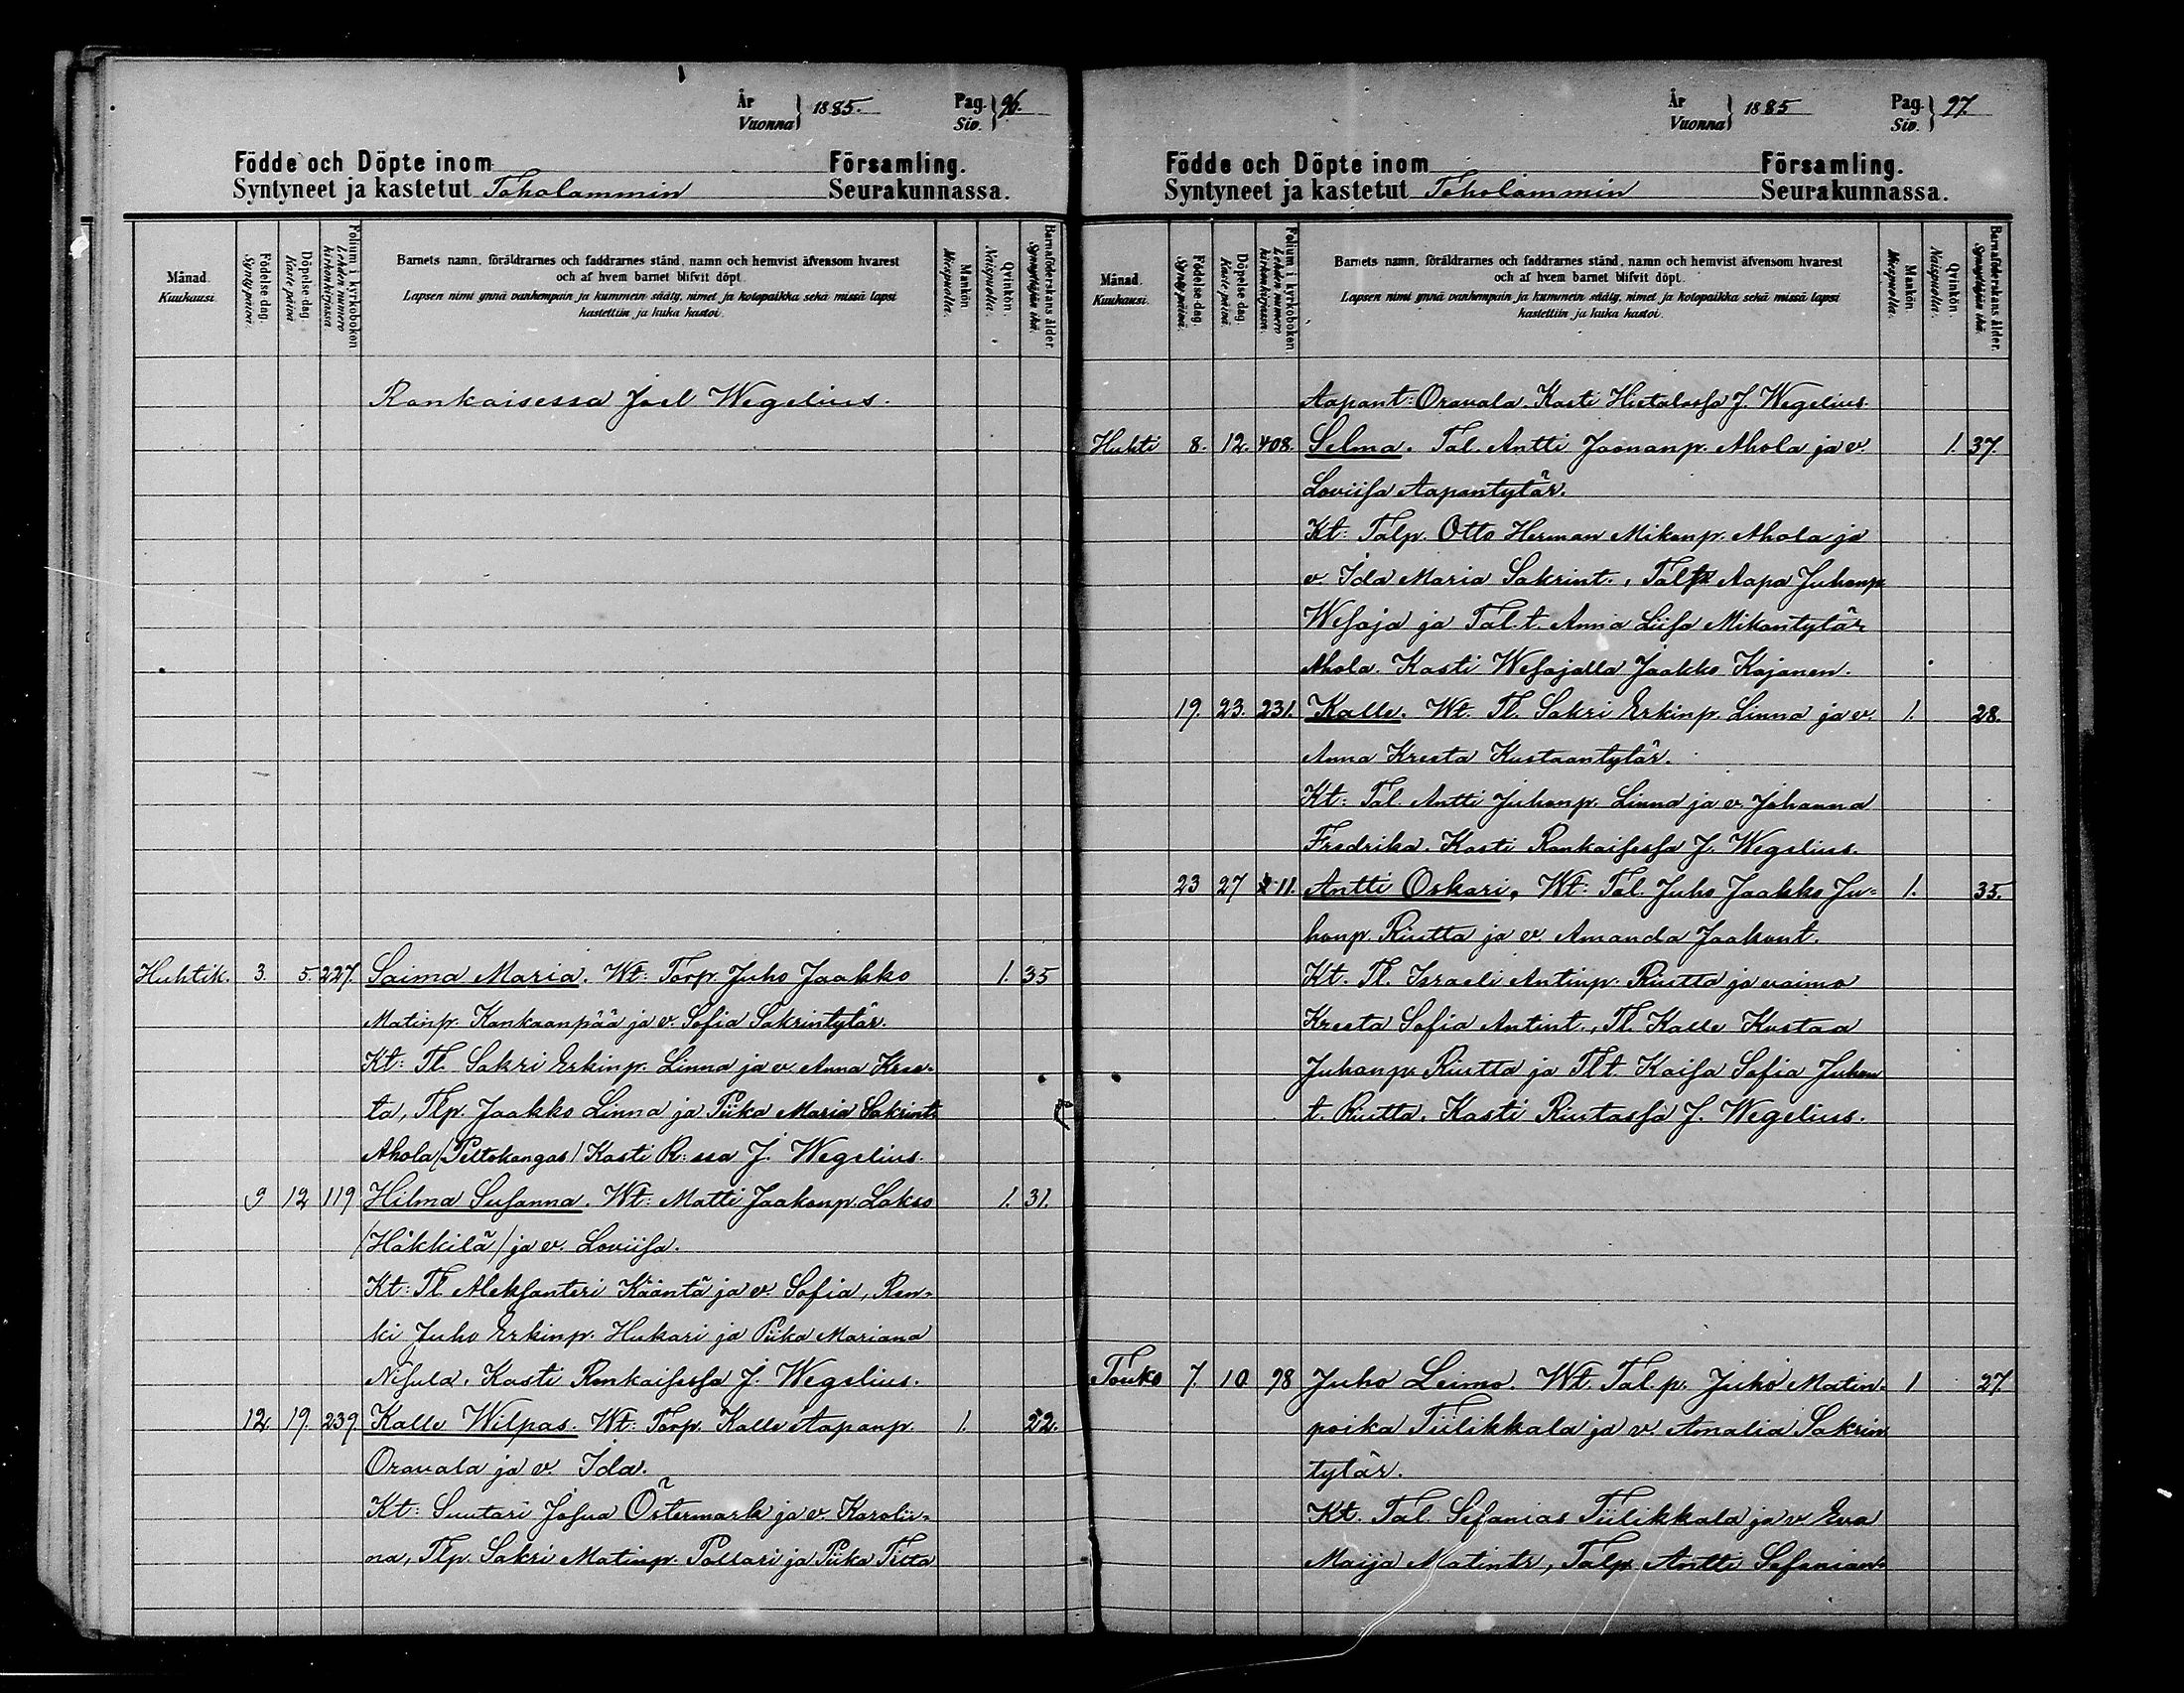 År
Vuonna } 1885.
Pag.
Siv. } 96.
Födde och Döpte inom Församling.
Syntyneet ja kastetut Toholammin Seurakunnassa.
Månad.
Kuukausi.
Födelse-dag.
Synty päivä.
Döpelse-dag.
Kaste päivä
Folium i kyrkoboken
Lehden numero kirkonkirjassa.
Barnets namn, föräldrarnes och faddrarnes stånd, namn och hemvist äfvensom hvarest
och af hvem barnet blifvit döpt.
Lapsen nimi ynnä vanhempain ja kummein sääty, nimet ja kotopaikka sekä missä lapsi
kastettiin ja kuka kastoi.
Mankön
Miespuolta.
Qvinkön.
Naispuolta.
Barnaföderskans ålder.
Synnyttäjän ikä.
Rankaisessa Joel Wegelius.
Huhtik. 3. 5. 227. Saima Maria. Wt: Torp. Juho Jaakko 1. 35
Matinp. Kankaanpää ja v. Sofia Sakrintytär.
Kt: Tl. Sakri Erkinp. Linna ja v. Anna Kree-
ta, Tlp. Jaakko Linna ja Piika Maria Sakrint.
Ahola /Peltokangas/ Kasti R:ssa J. Wegelius.
9 12 119 Hilma Susanna. Wt: Matti Jaakonp. Lakso 1. 31.
/Häkkilä/ ja v. Loviisa.
Kt: Tl. Aleksanteri Kääntä ja v. Sofia, Ren-
ki Juho Erkinp. Hukari ja Piika Mariana
Nisula. Kasti Rankaisessa J. Wegelius.
12. 19. 239. Kalle Wilpas. Wt: Torp. Kalle Aapanp. 1. 22.
Oravala ja v. Ida.
Kt: Suutari Josua Östermark ja v. Karolii-
na, Tlp. Sakri Matinp. Pollari ja Piika Fiita
År
Vuonna } 1885
Pag.
Siv. } 97.
Födde och Döpte inom Församling.
Syntyneet ja kastetut Toholammin Seurakunnassa.
Månad.
Kuukausi.
Födelse-dag.
Synty päivä.
Döpelse-dag.
Kaste päivä.
Folium i kyrkoboken.
Lehden numero kirkonkirjassa.
Barnets namn, föräldrarnes och faddrarnes stånd, namn och hemvist äfvensom hvarest
och af hvem barnet blifvit döpt.
Lapsen nimi ynnä vanhempain ja kummein sääty, nimet ja kotopaikka sekä missä lapsi
kastettiin ja kuka kastoi.
Mankön.
Miespuolta.
Qvinkön.
Naispuolta.
Barnaföderskans ålder.
Synnyttäjän ikä.
Aapant: Oravala. Kasti Hietalassa J. Wegelius.
Huhti 8. 12. 408. Selma. Tal. Antti Joonanp. Ahola ja v. 1. 37.
Loviisa Aapantytär.
Kt: Talp. Otto Herman Mikonp. Ahola ja
v. Ida Maria Sakrint., Talp Aapa Juhonp
Wesoja ja Tal.t. Anna Liisa Mikontytär
Ahola. Kasti Wesojalla Jaakko Kajanen.
19. 23. 231. Kalle. Wt. Tl. Sakri Erkinp. Linna ja v. 1. 28.
Anna Kreeta Kustaantytär.
Kt: Tal. Antti Juhonp. Linna ja v. Johanna
Fredrika. Kasti Rankaisessa J. Wegelius.
23 27 11. Antti Oskari, Wt: Tal. Juho Jaakko Ju- 1. 35.
honp. Riutta ja v. Amanda Jaakont.
Kt. Tl. Israeli Antinp. Riutta ja vaimo
Kreeta Sofia Antint., Tl. Kalle Kustaa
Juhonp. Riutta ja Tl.t. Kaisa Sofia Juhon
t. Riutta. Kasti Riutassa J. Wegelius.
Touko 7. 10 98 Juho Leimo. Wt. Tal.p. Juho Matin- 1 27
poika Tiilikkala ja v. Amalia Sakrin
tytär.
Kt. Tal. Sefanias Tiilikkala ja v. Eva
Maija Matintr, Talp. Antti Sefanian-